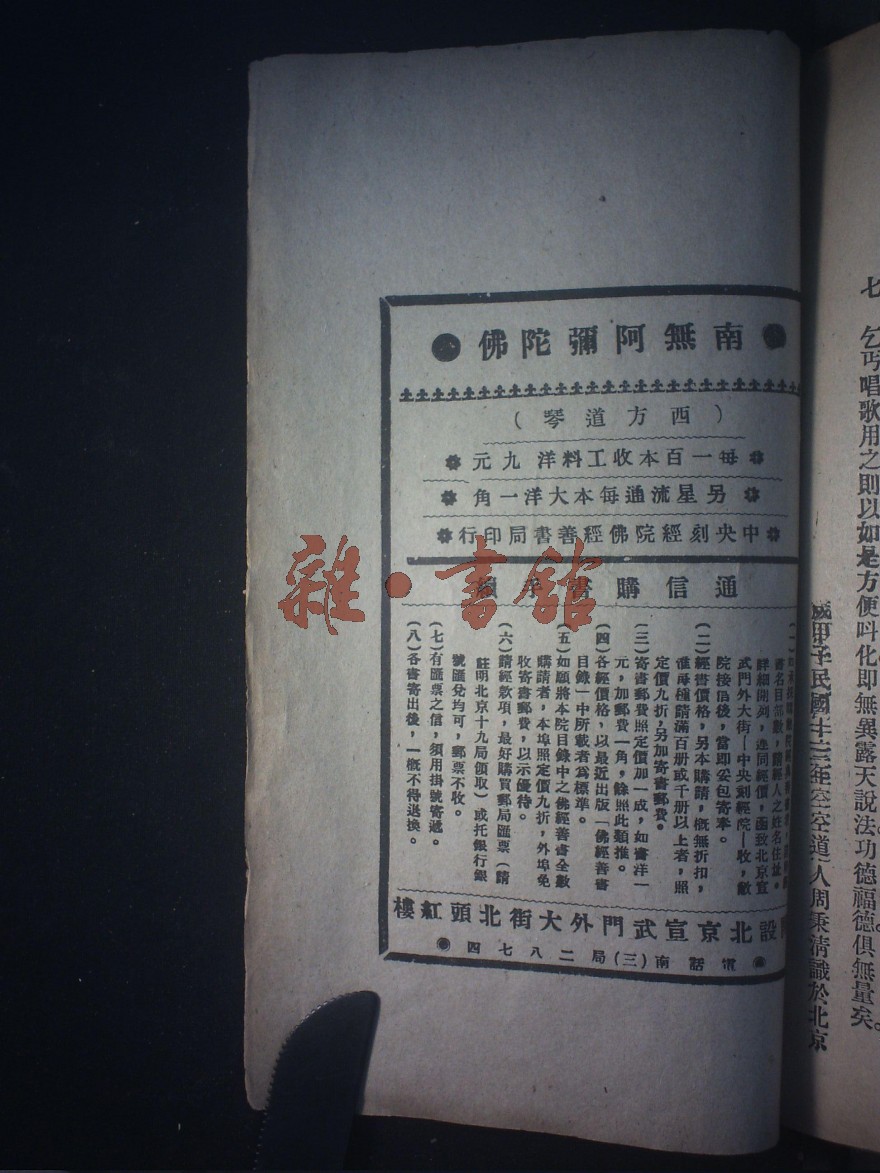 七 乞丐唱歌用之則以如是方便呌化即無異露天說法功德福德俱無量矣。
歲甲子民國十三年空空道人周秉清識於北京
●南無阿彌陀佛●
(西方道琴)
每一百本收工料洋九元
另星流通每本大洋一角
中央刻經院佛經善書局印行
通信購書手續
書名目部數,請經人之姓名住址。
詳細開列,連同經價,函致北京宣
武門外大街—中央刻經院—收,敝
院接信後,當即妥包寄奉。
(二)經書價格,另本購請,概無折扣,
惟每種請滿百册或千册以上者,照
定價九折,另加寄書郵費。
(三)寄書郵費照定價加一成,如書洋一
元,加郵費一角,餘照此類推。
(四)各經價格,以最近出版「佛經善書
目錄」中所載者爲標準。
(五)如願將本院目錄中之佛經善書全數
購請者,本埠照定價九折,外埠免
收寄書郵費,以示優待。
(六)請經款項,最好購買郵局匯票(請
註明北京十九局領取)或托銀行銀
號匯兌均可,郵票不收。
(七)有匯票之信,須用掛號寄遞。
(八)各書寄出後,一概不得退換。
設北京宣武門外大街北頭紅樓
電話南(三)局二八七四
雜·書館